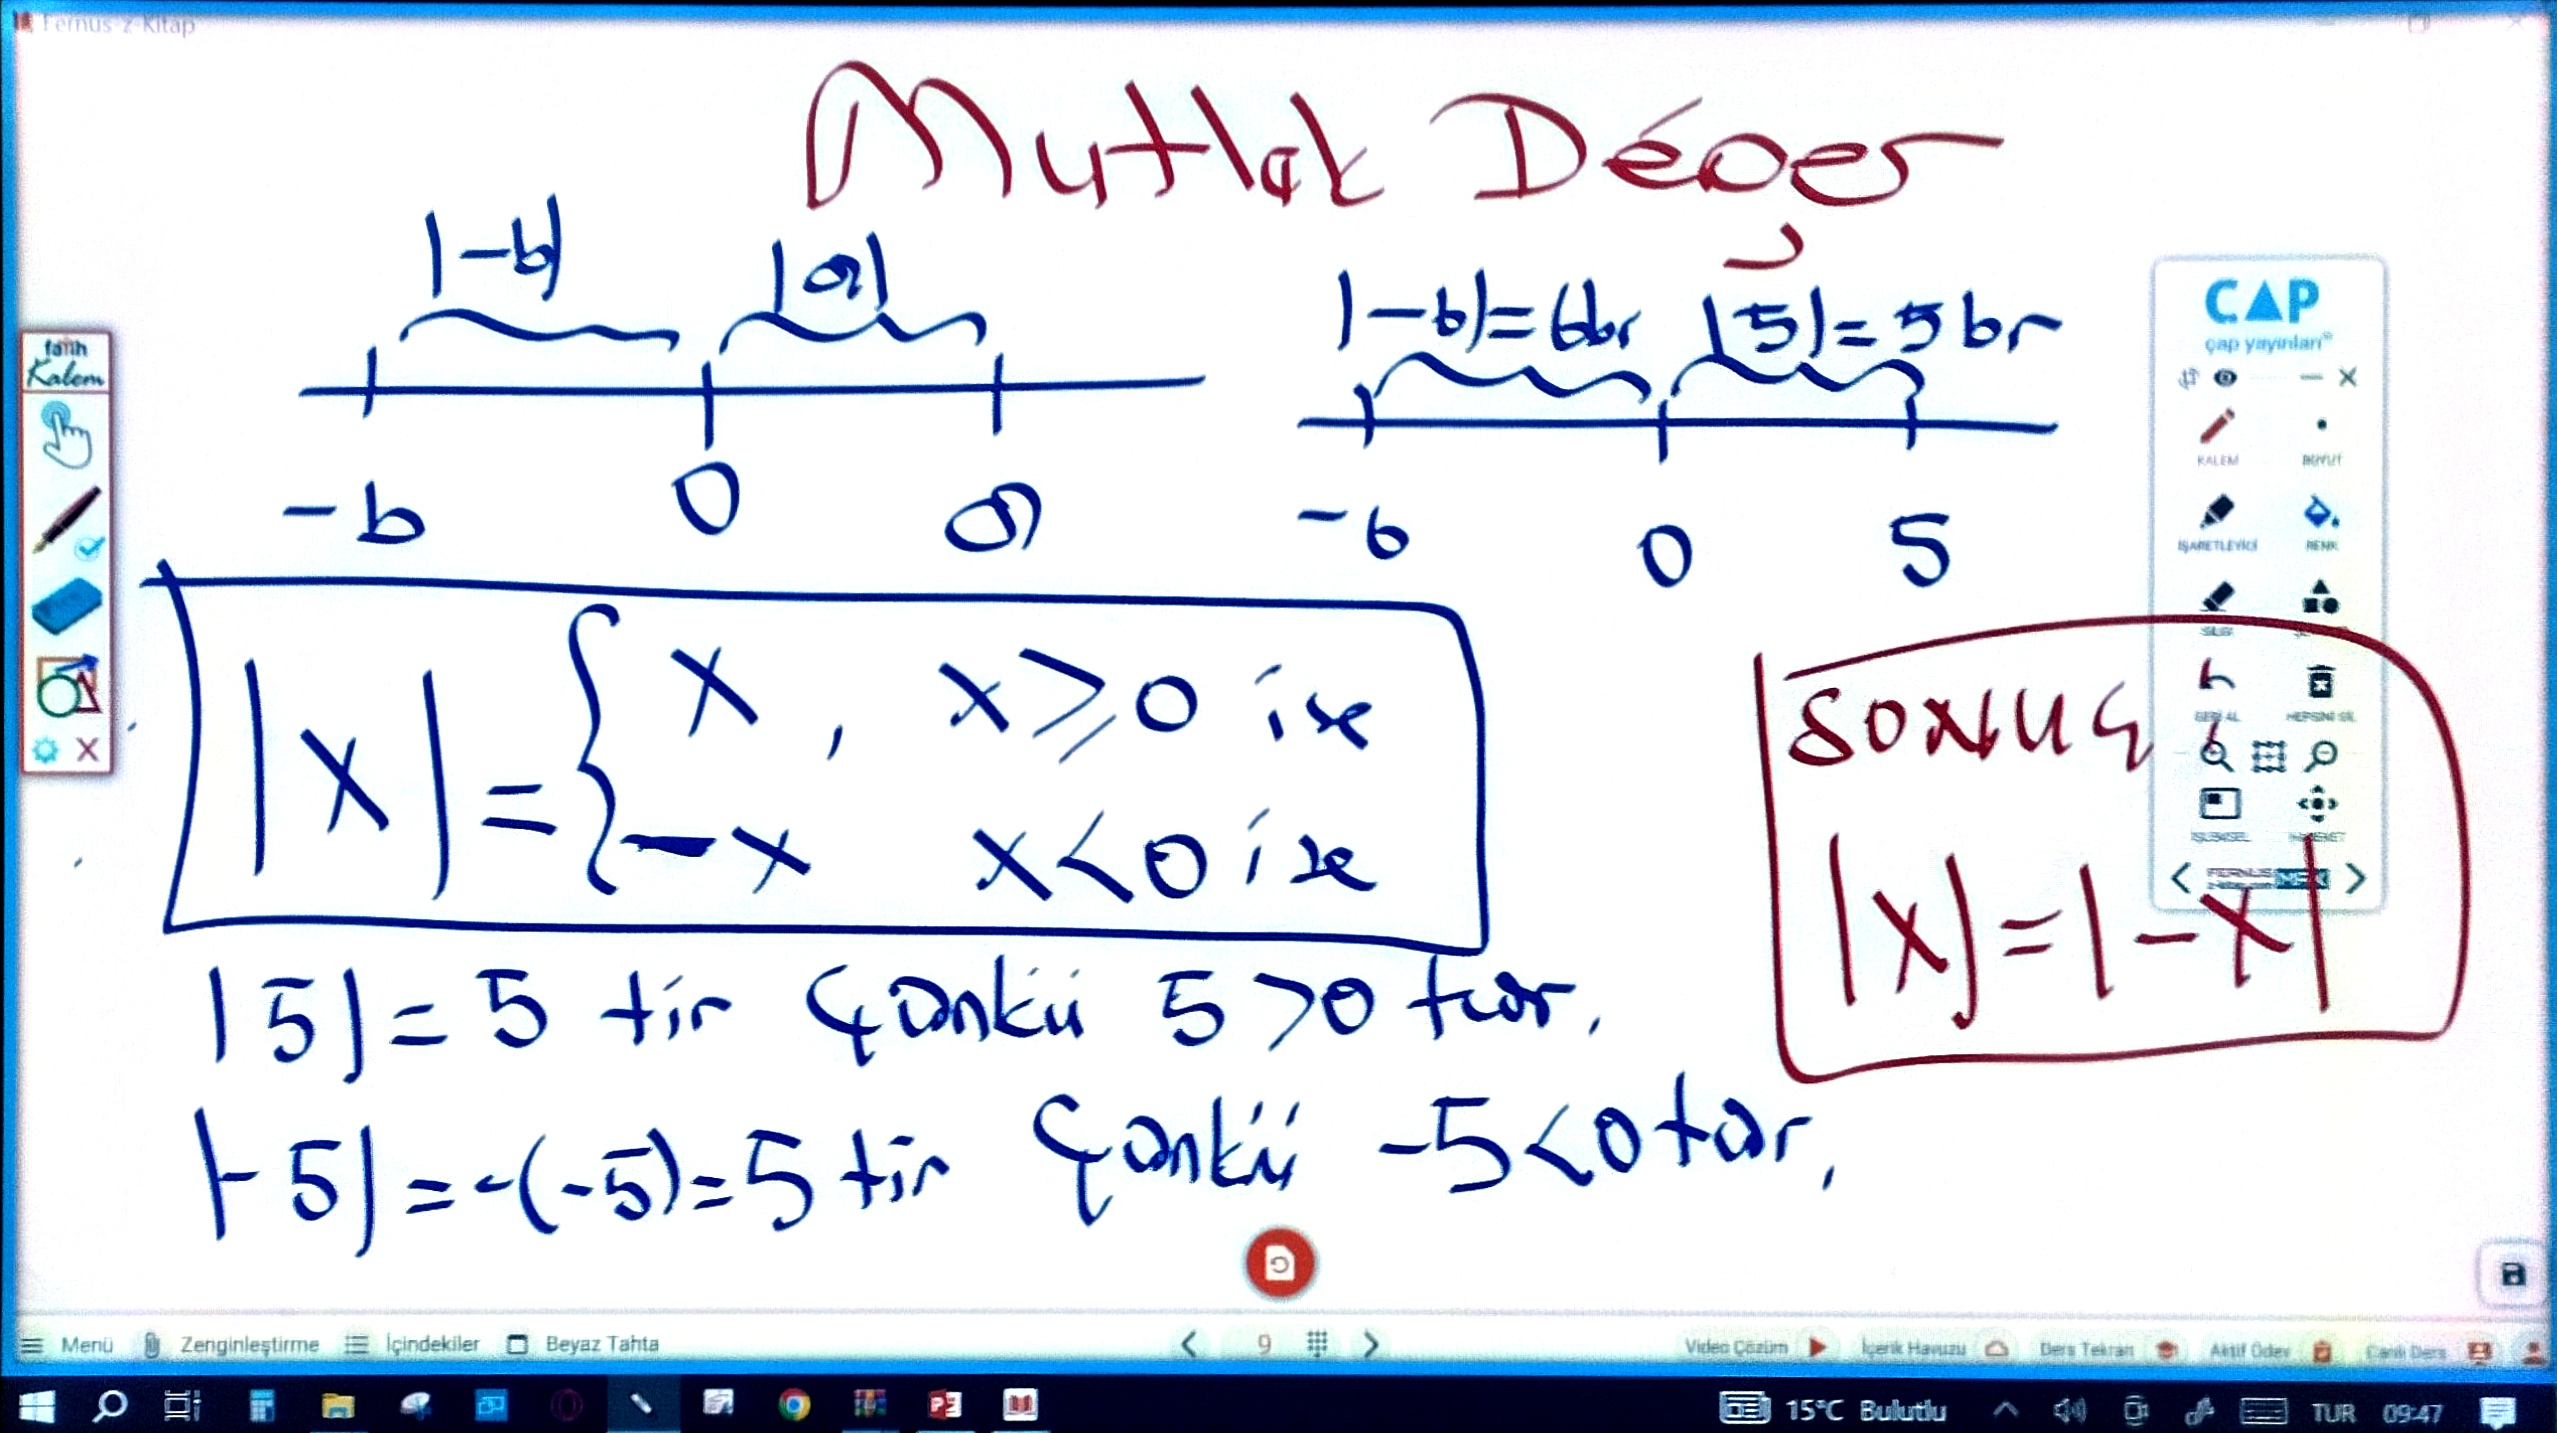 Fernus-Z-Kitap
Mutlak Değer
|-b| |a|
|-6|=6br |5|=5br
-b 0 a
-6 0 5
|x|= { x , x≥0 ise
-x x<0 ise
|5|=5 tir Çünkü 5>0 tür.
|-5|=-(-5)=5 tir Çünkü -5<0 tür.
SONUÇ
|x|=|-x|
fatih
Kalem
CAP
çap yayınları®
KALEM BOYUT
İŞARETLEYİCİ RENK
SİLGİ
GERİ AL HEPSİNİ SİL
Menü Zenginleştirme İçindekiler Beyaz Tahta
9
Video Çözüm İçerik Havuzu Ders Tekrarı Aktif Ödev Canlı Ders
15°C Bulutlu TUR 09:47